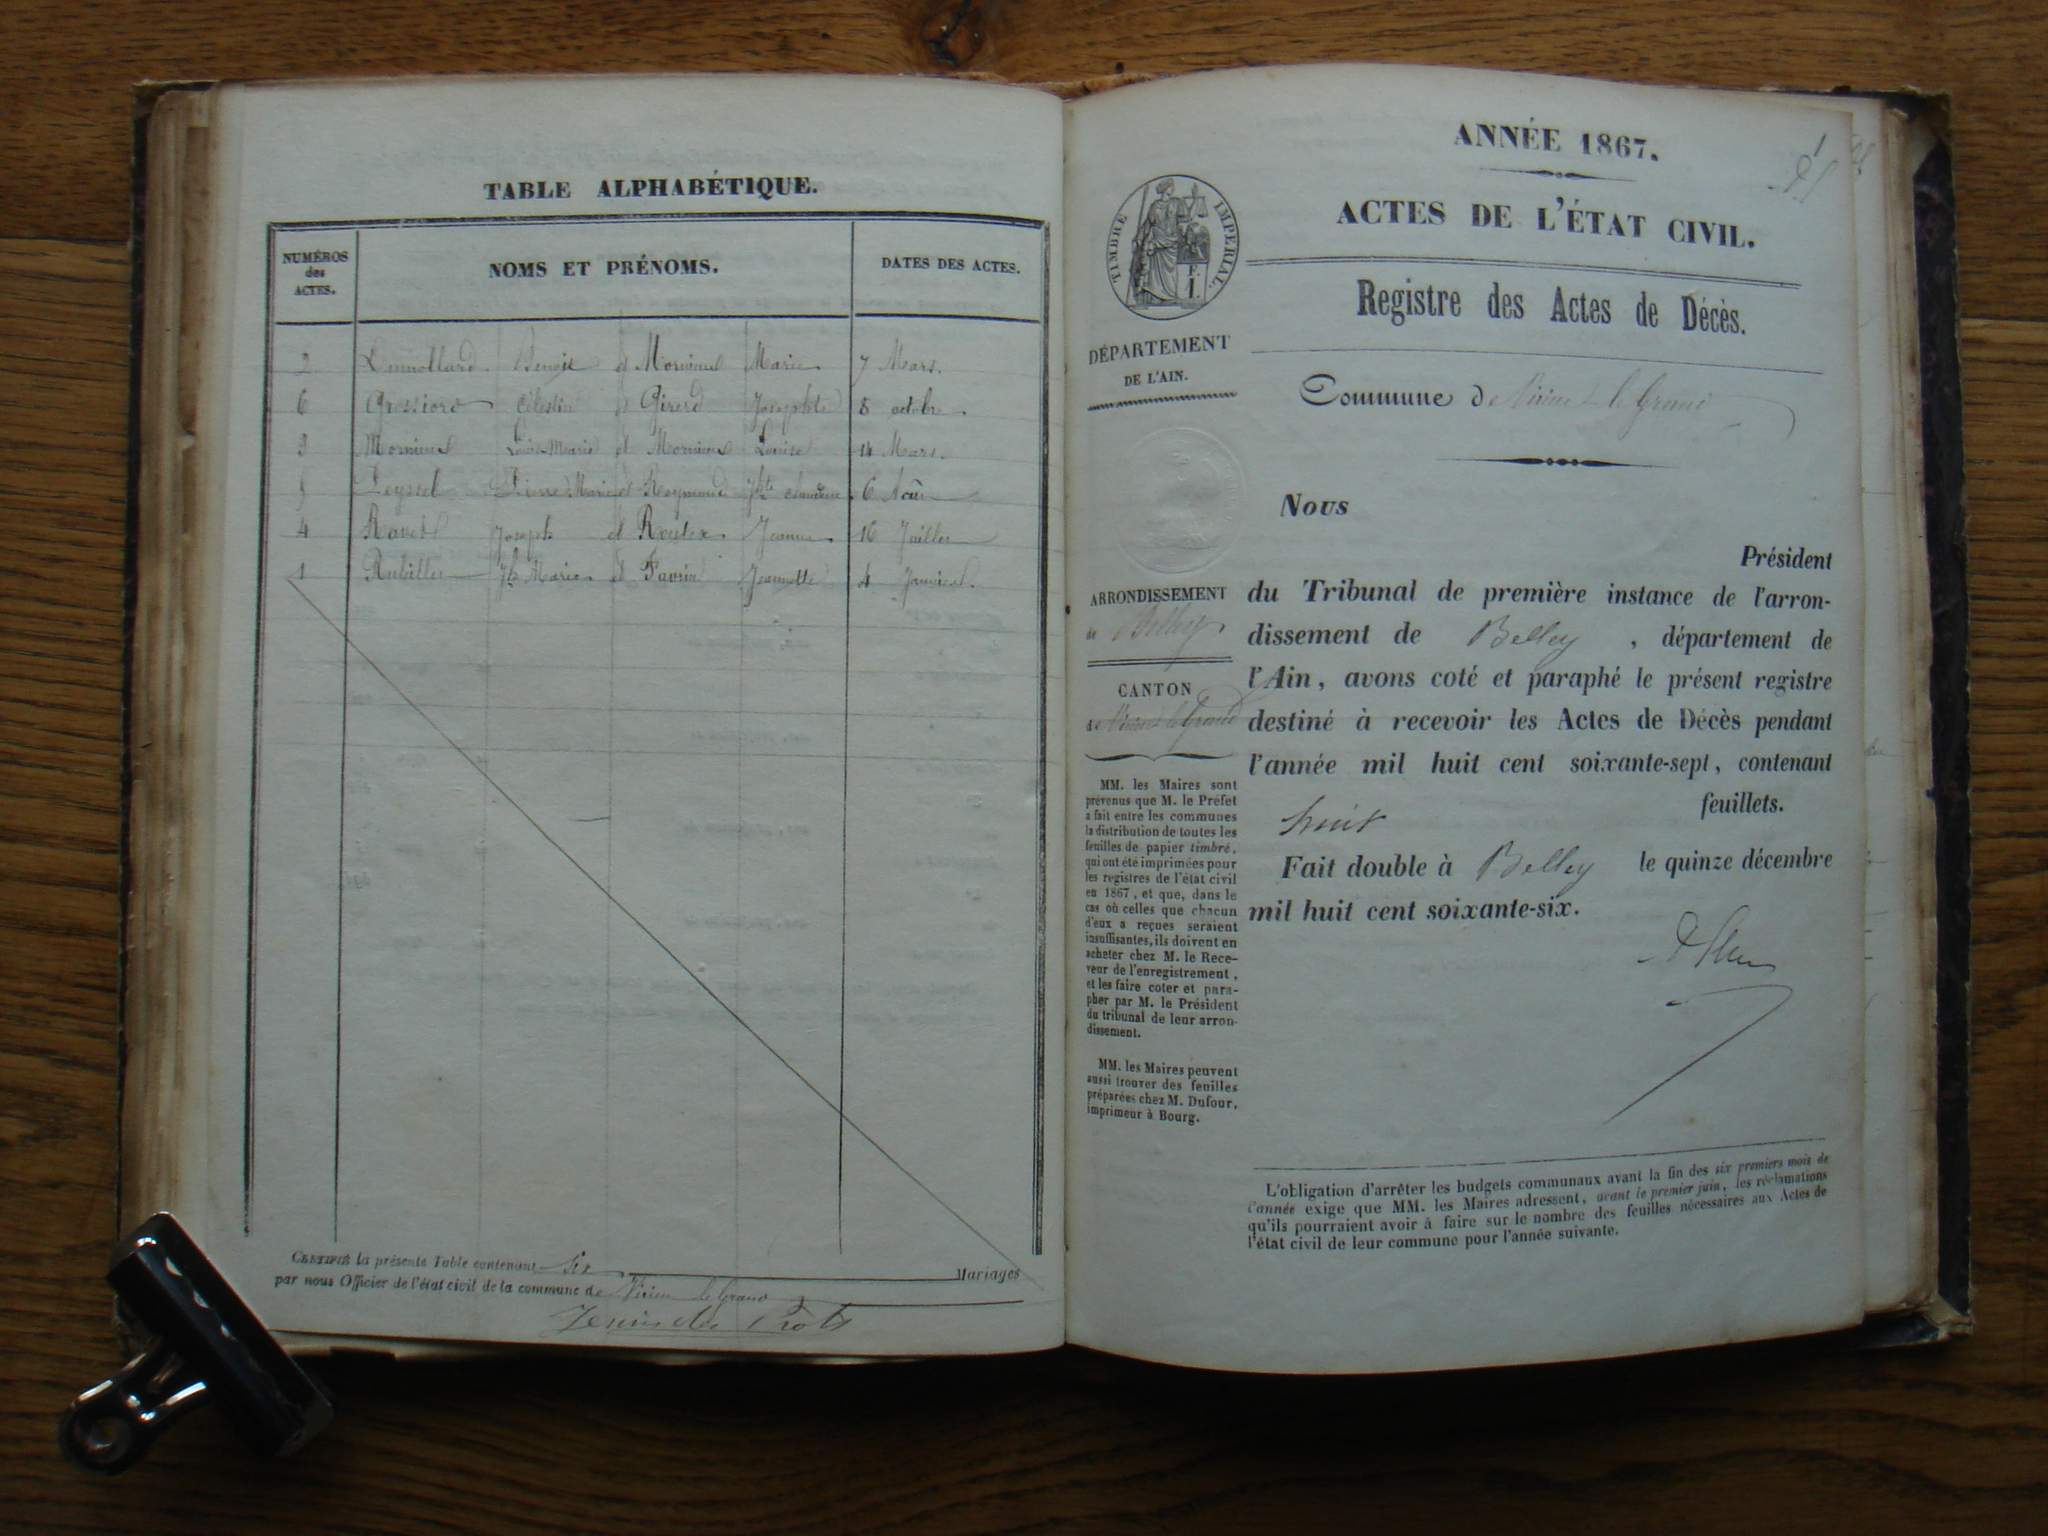 TABLE ALPHABÉTIQUE.
NUMÉROS
des
ACTES.
NOMS ET PRÉNOMS.
DATES DES ACTES.
2 Benoit et Mornieux Marie 7 Mars.
6 Gressiord Célestin et Girerd Josephte 8 octobre.
3 Mornieux Louis Marie et Mornieux Louise 14 Mars.
5 Peyssel Pierre Marie et Reymond Jte Claudine 6 Août
4 Joseph et Jeanne 16 Juillet
1 Rubellin Jh Marie et Favrin Jeannette 4 Janvier.
CERTIFIÉ la présente Table contenant six Mariages
par nous Officier de l'état civil de la commune de Virieu le Grand
ANNÉE 1867.
1
ACTES DE L'ÉTAT CIVIL.
Registre des Actes de Décès.
TIMBRE IMPERIAL.
DÉPARTEMENT
DE L'AIN.
Commune de Virieu le Grand
ARRONDISSEMENT
de Belley.
CANTON
de Virieu le Grand
MM. les Maires sont
prévenus que M. le Préfet
a fait entre les communes
la distribution de toutes les
feuilles de papier timbré,
qui ont été imprimées pour
les registres de l'état civil
en 1867, et que, dans le
cas où celles que chacun
d'eux a reçues seraient
insuffisantes, ils doivent en
acheter chez M. le Rece-
veur de l'enregistrement,
et les faire coter et para-
pher par M. le Président
du tribunal de leur arron-
dissement.
MM. les Maires peuvent
aussi trouver des feuilles
préparées chez M. Dufour,
imprimeur à Bourg.
Nous
Président
du Tribunal de première instance de l'arron-
dissement de Belley, département de
l'Ain, avons coté et paraphé le présent registre
destiné à recevoir les Actes de Décès pendant
l'année mil huit cent soixante-sept, contenant
huit feuillets.
Fait double à Belley le quinze décembre
mil huit cent soixante-six.
L'obligation d'arrêter les budgets communaux avant la fin des six premiers mois de
l'année exige que MM. les Maires adressent, avant le premier juin, les réclamations
qu'ils pourraient avoir à faire sur le nombre des feuilles nécessaires aux Actes de
l'état civil de leur commune pour l'année suivante.